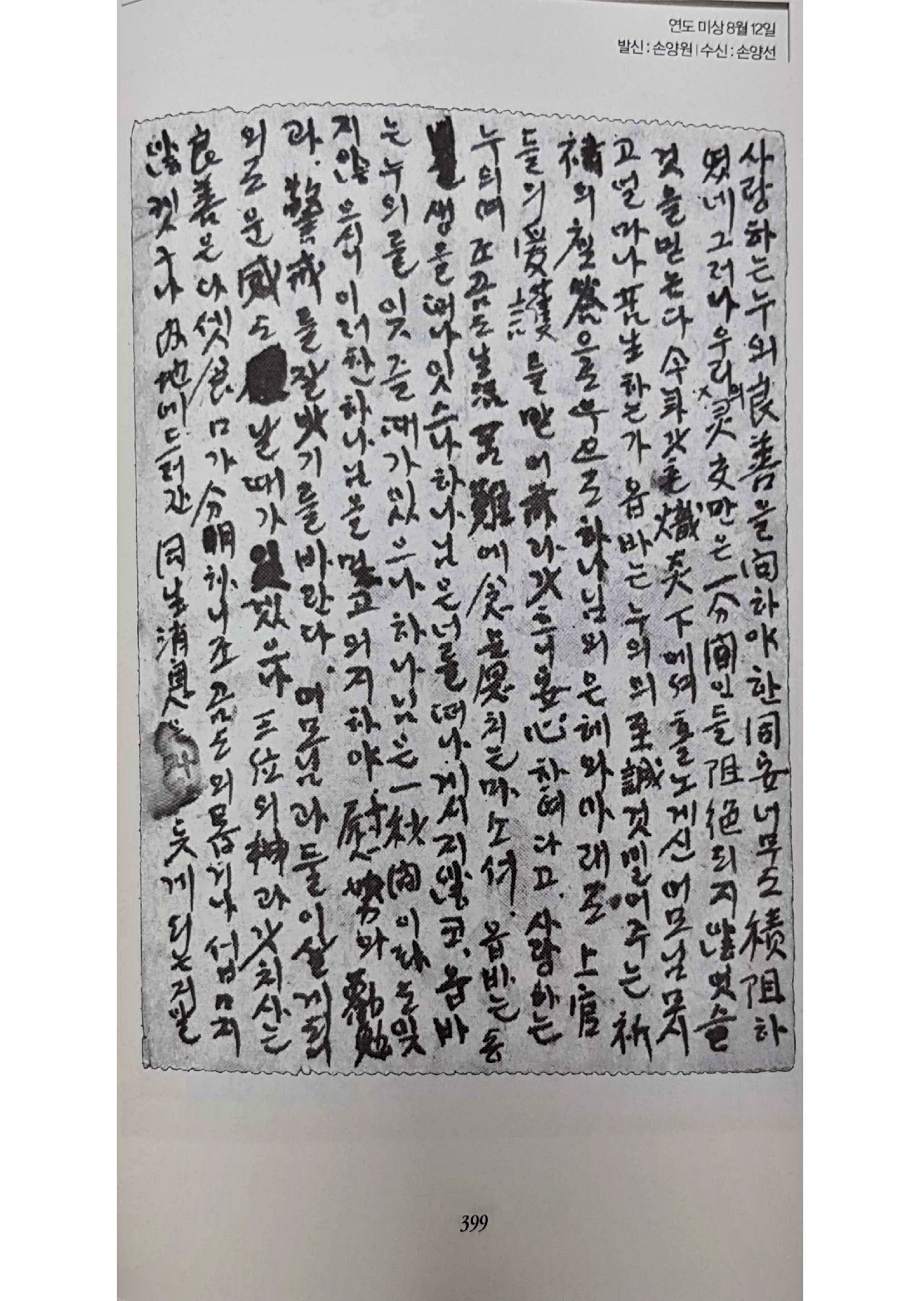 연도 미상 8월 12일
발신 : 손양원 | 수신 : 손양선
사랑하는 누의 良善을 向하야 한 同安 너무도 積阻하
엿네 그러나 우리의 灵交만은 一分間인들 阻絶되지 않엇슬
것을 믿는다 今年갓흔 熾炎下에서 홀노 게신 어모님 못시
고 얼마나 苦生하는가 옵바는 누의의 至誠것 밀어주는 祈
禱의 으로 우으로 하나님의 은혜와 아래로 上官
들의 愛護를 만이 갓흐니 安心하여다고. 사랑하는
누의여 조금도 生活 難에 마소서. 옵바는 동
생을 떠나 잇스나 하나님은 너를 떠나 게서지 않코, 옵바
는 누의를 잇즐 때가 있으나 하나님은 一秒間이라도 잊
지 않으신이 이러한 하나님을 믿고 의지하야 慰勞와 勸勉
과, 警戒를 잘 밧기를 바란다. 어모님과 둘이 살게 되
외로운 도 날 때가 있겠으나 三位의 神과 갓치 사는
良善은 다섯 食口가 分明하니 조금도 외롭거나 섭々지
않켓구나 內地에 드러간 同生 消息은 듯게 되는지 알
399